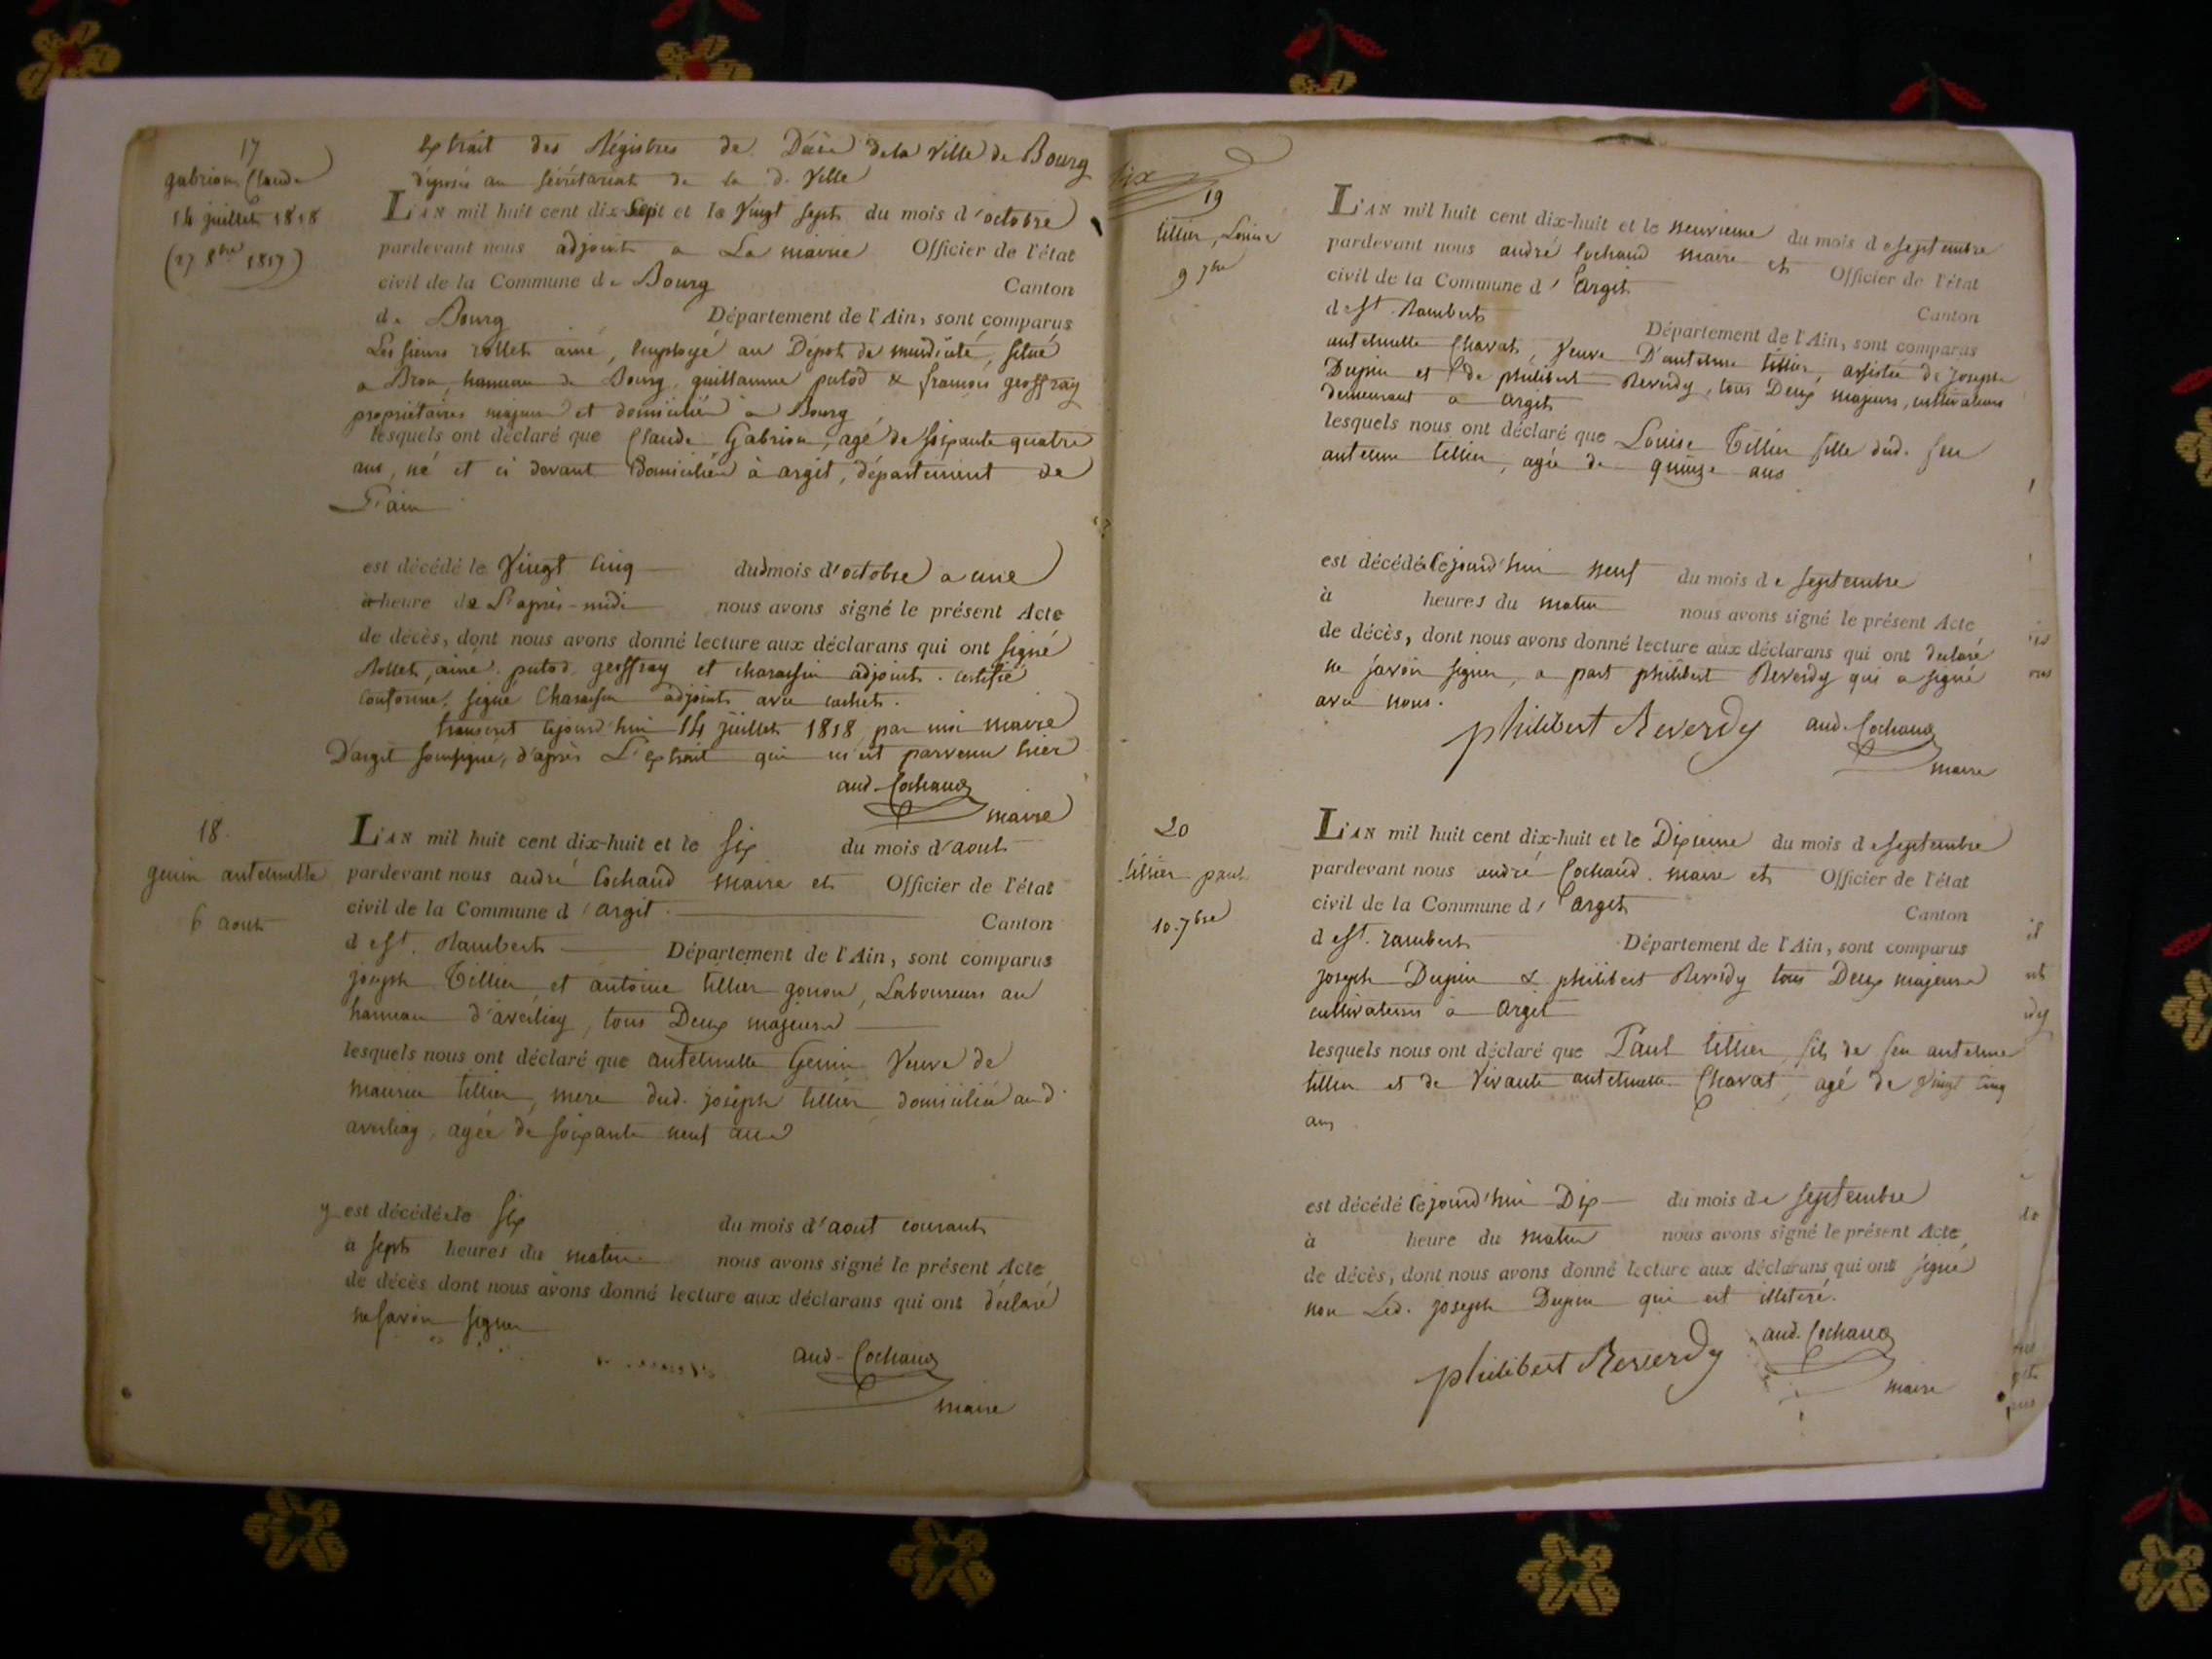 17
gabrion Claude
14 juillet 1818
(27 8bre 1817)
Extrait des Régistres de Décès de la Ville de Bourg
déposés au sécrétariat de la d. Ville
L'AN mil huit cent dix-sept et le Vingt sept du mois d'octobre
pardevant nous adjoint a La mairie Officier de l'état
civil de la Commune de Bourg Canton
de Bourg Département de l'Ain, sont comparus
Les sieurs rollet ainé, Employé au Dépot de mendicité, situé
a Brou, hameau de Bourg, guillaume putod & françois geoffray
propriétaires majeurs et domiciliés a Bourg
lesquels ont déclaré que Claude Gabrion, agé de soixante quatre
ans, né et ci devant Domicilié à argit, département de
L'ain
est décédé le Vingt cinq dud mois d'octobre a une
heure de L'après-midi nous avons signé le présent Acte
de décès, dont nous avons donné lecture aux déclarans qui ont signé
Rollet, ainé. putod. geoffray et charassin adjoint. certifié
conforme. signé Charassin adjoint avec cachet.
transcrit cejourd'hui 14 juillet 1818 par moi maire
D'argit soussigné, d'après L'extrait qui m'est parvenu hier
and. Cochaud
maire
18.
genin antelmette
6 aout
L'AN mil huit cent dix-huit et le six du mois d'aout
pardevant nous andré Cochaud maire et Officier de l'état
civil de la Commune d'argit. Canton
de st. Rambert Département de l'Ain, sont comparus
joseph Tillier et antoine tillier gonon, Laboureurs au
hameau d'averliaz, tous Deux majeurs
lesquels nous ont déclaré que antelmette Genin Veuve de
maurice tillier, mere dud. joseph tillier domiciliée aud.
averliaz, agée de soixante neuf ans
y est décédée le six du mois d'aout courant
à sept heures du matin nous avons signé le présent Acte
de décès dont nous avons donné lecture aux déclarans qui ont déclaré
ne savoir signer
and. Cochaud
maire
dix
19
tillier, Louise
9 7bre
L'AN mil huit cent dix-huit et le neuvieme du mois de septembre
pardevant nous andré Cochaud maire et Officier de l'état
civil de la Commune d'argit Canton
de st. Rambert Département de l'Ain, sont comparus
antelmette Chavat, Veuve D'antelme tillier, assistée de joseph
Dupin et de philibert Reverdy, tous Deux majeurs, cultivateurs
demeurant a argit
lesquels nous ont déclaré que Louise Tillier fille dud. feu
antelme tillier, agée de quinze ans
est décédée cejourd'hui neuf du mois de septembre
à heures du matin nous avons signé le présent Acte
de décès, dont nous avons donné lecture aux déclarans qui ont declaré
ne savoir signer, a part philibert Reverdy qui a signé
avec nous.
philibert Reverdy and. Cochaud
maire
20
tillier paul
10. 7bre
L'AN mil huit cent dix-huit et le Dixieme du mois de septembre
pardevant nous andré Cochaud. maire et Officier de l'état
civil de la Commune d'argit Canton
de st. rambert Département de l'Ain, sont comparus
joseph Dupin & philibert Reverdy tous Deux majeurs
cultivateurs a argit
lesquels nous ont déclaré que Paul tillier, fils de feu antelme
tillier et de Vivante antelmette Chavat, agé de Vingt cinq
ans
est décédé cejourd'hui Dix du mois de septembre
à heure du matin nous avons signé le présent Acte
de décès, dont nous avons donné lecture aux déclarans qui ont signé
non Led. joseph Dupin qui est illiteré.
philibert Reverdy and. Cochaud
maire